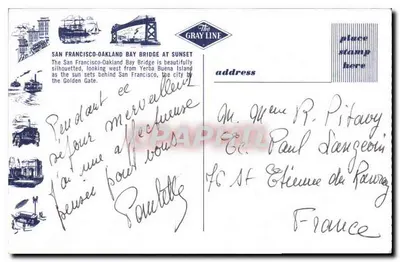 SAN FRANCISCO-OAKLAND BAY BRIDGE AT SUNSET
The San Francisco-Oakland Bay Bridge is beautifully
silhouetted, looking west from Yerba Buena Island
as the sun sets behind San Francisco, the city by
the Golden Gate.
The
GRAY LINE
place
stamp
here
address
Pendant ce
séjour merveilleux
j'ai une affectueuse
pensée pour vous.
Paulette
M. Mme R. Pitavy
Ec. Paul Langevin
76 St Etienne du Rouvray
France